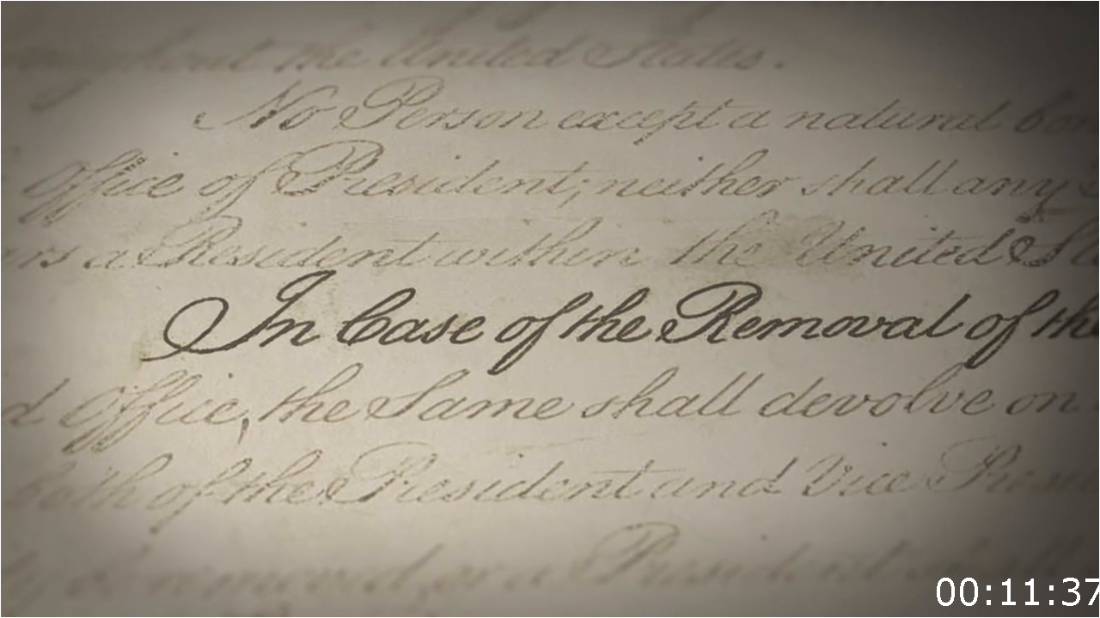 the United States.
No Person except a natural
Office of President; neither shall any
a Resident within the United
In Case of the Removal of the
Office, the Same shall devolve on
of the President and Vice
or a President
00:11:37